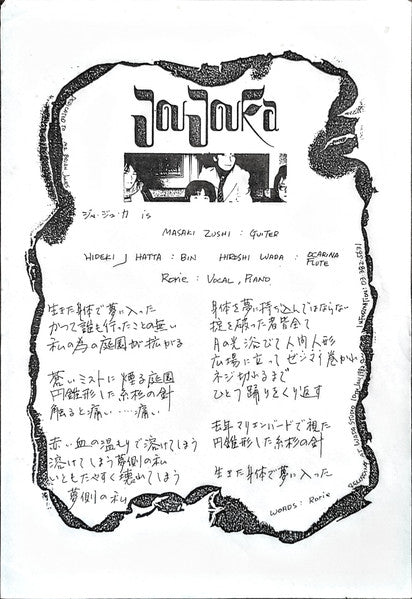 JouJouka
ジュ・ジュ・カ is
MASAKI ZUSHI : GUITER
HIDEKI J HATTA : BIN HIROSHI WADA : OCARINA FLUTE
Rorie : VOCAL, PIANO
生きた身体で夢に入った
かつて誰も行ったことの無い
私の為の庭園が拡がる
蒼いミストに煙る庭園
円錐形した糸杉の針
触ると痛い……痛い
赤い血の温もりで溶けてしまう
溶けてしまう夢側の私
いともたやすく壊れてしまう
夢側の私
身体を夢に持ち込んではならない
掟を破った者皆全て
月の光浴びて人間人形
広場に立ってゼンマイ巻かれ
ネジ切れるまで
ひとつ踊りをくり返す
去年マリエンバードで視た
円錐形した糸杉の針
生きた身体で夢に入った
WORDS : Rorie